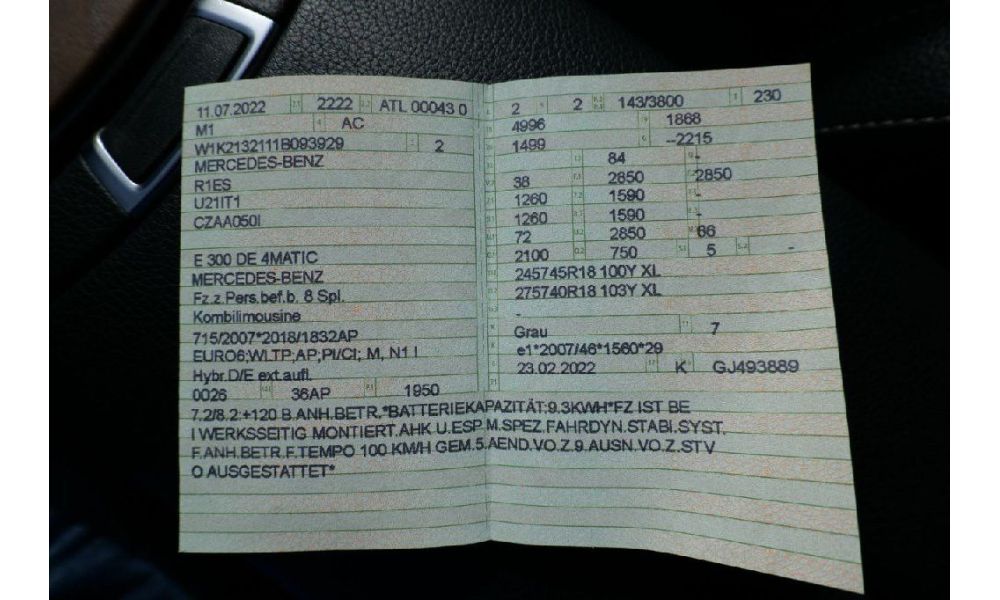 11.07.2022 2222 ATL 00043 0
M1 AC
W1K2132111B093929 2
MERCEDES-BENZ
R1ES
U21IT1
CZAA050I
E 300 DE 4MATIC
MERCEDES-BENZ
Fz.z.Pers.bef.b. 8 Spl.
Kombilimousine
715/2007*2018/1832AP
EURO6;WLTP;AP;PI/CI; M, N1 I
Hybr.D/E ext.aufl.
0026 36AP 1950
2 2 143/3800 230
4996 1868
1499 --2215
84 -
38 2850 2850
1260 1590 -
1260 1590 -
72 2850 66
2100 750 5 -
245745R18 100Y XL
275740R18 103Y XL
-
Grau 7
e1*2007/46*1560*29
23.02.2022 K GJ493889
7.2/8.2:+120 B.ANH.BETR.*BATTERIEKAPAZITÄT:9.3KWH*FZ IST BE
I WERKSSEITIG MONTIERT.AHK U.ESP M.SPEZ.FAHRDYN.STABI.SYST.
F.ANH.BETR.F.TEMPO 100 KM/H GEM.5.AEND.VO.Z.9.AUSN.VO.Z.STV
O AUSGESTATTET*